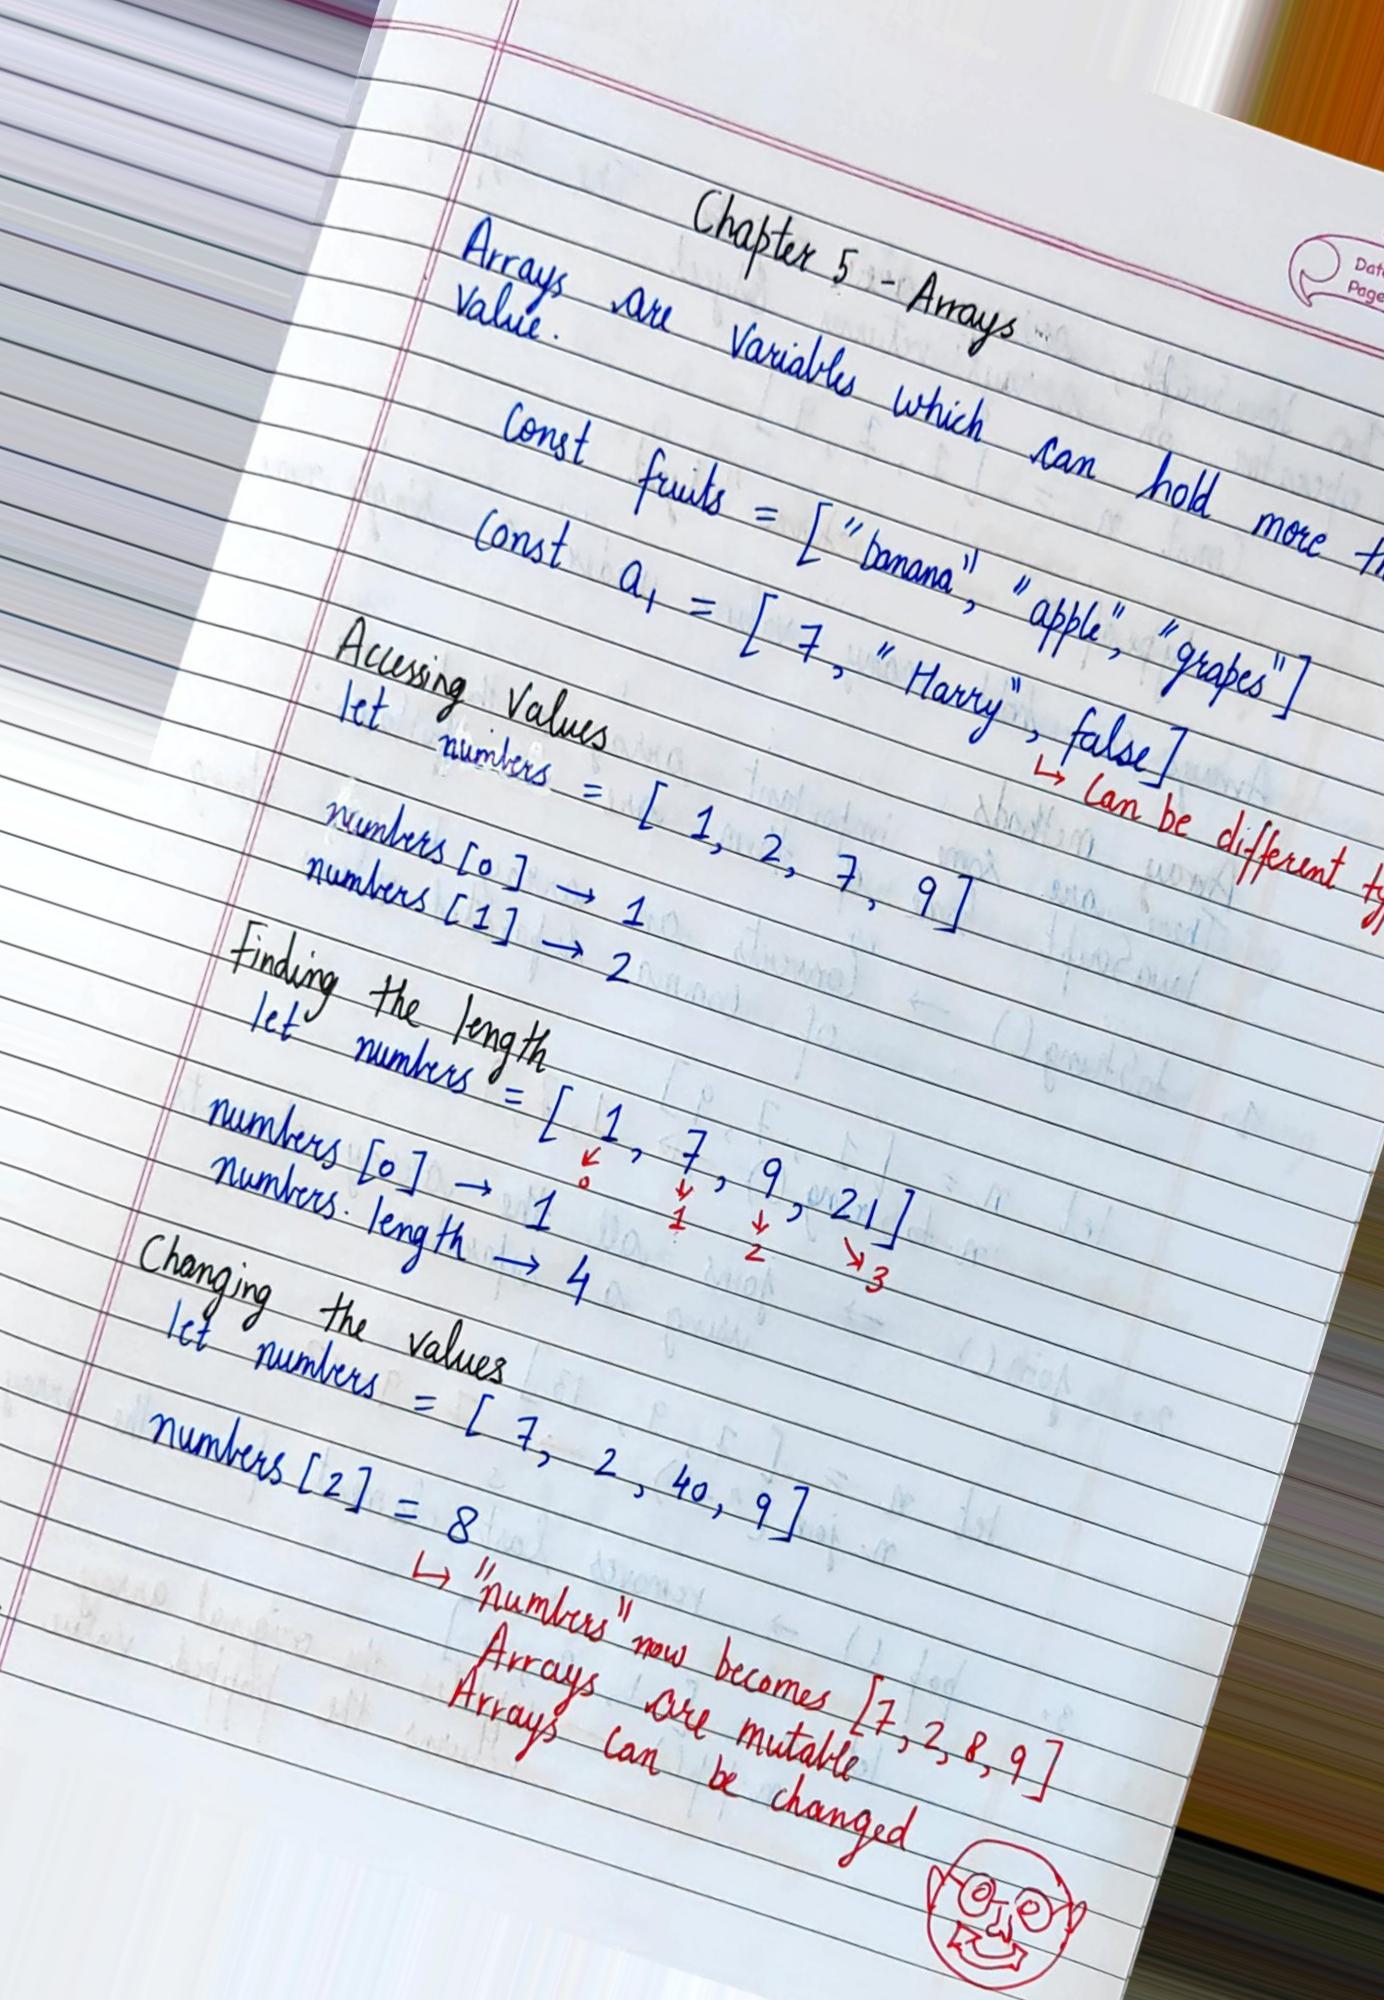 Date
Page
Chapter 5 - Arrays
Arrays are variables which can hold more
value.
Const fruits = ["banana", "apple", "grapes"]
Const a1 = [ 7, "Harry", false]
↳ Can be different
Accessing Values
let numbers = [ 1, 2, 7, 9]
numbers [0] → 1
numbers [1] → 2
Finding the length
let numbers = [ 1, 7, 9, 21]
0 1 2 3
numbers [0] → 1
numbers. length → 4
Changing the values
let numbers = [ 7, 2, 40, 9]
numbers [2] = 8
↳ "numbers" now becomes [7, 2, 8, 9]
Arrays are mutable
Arrays can be changed